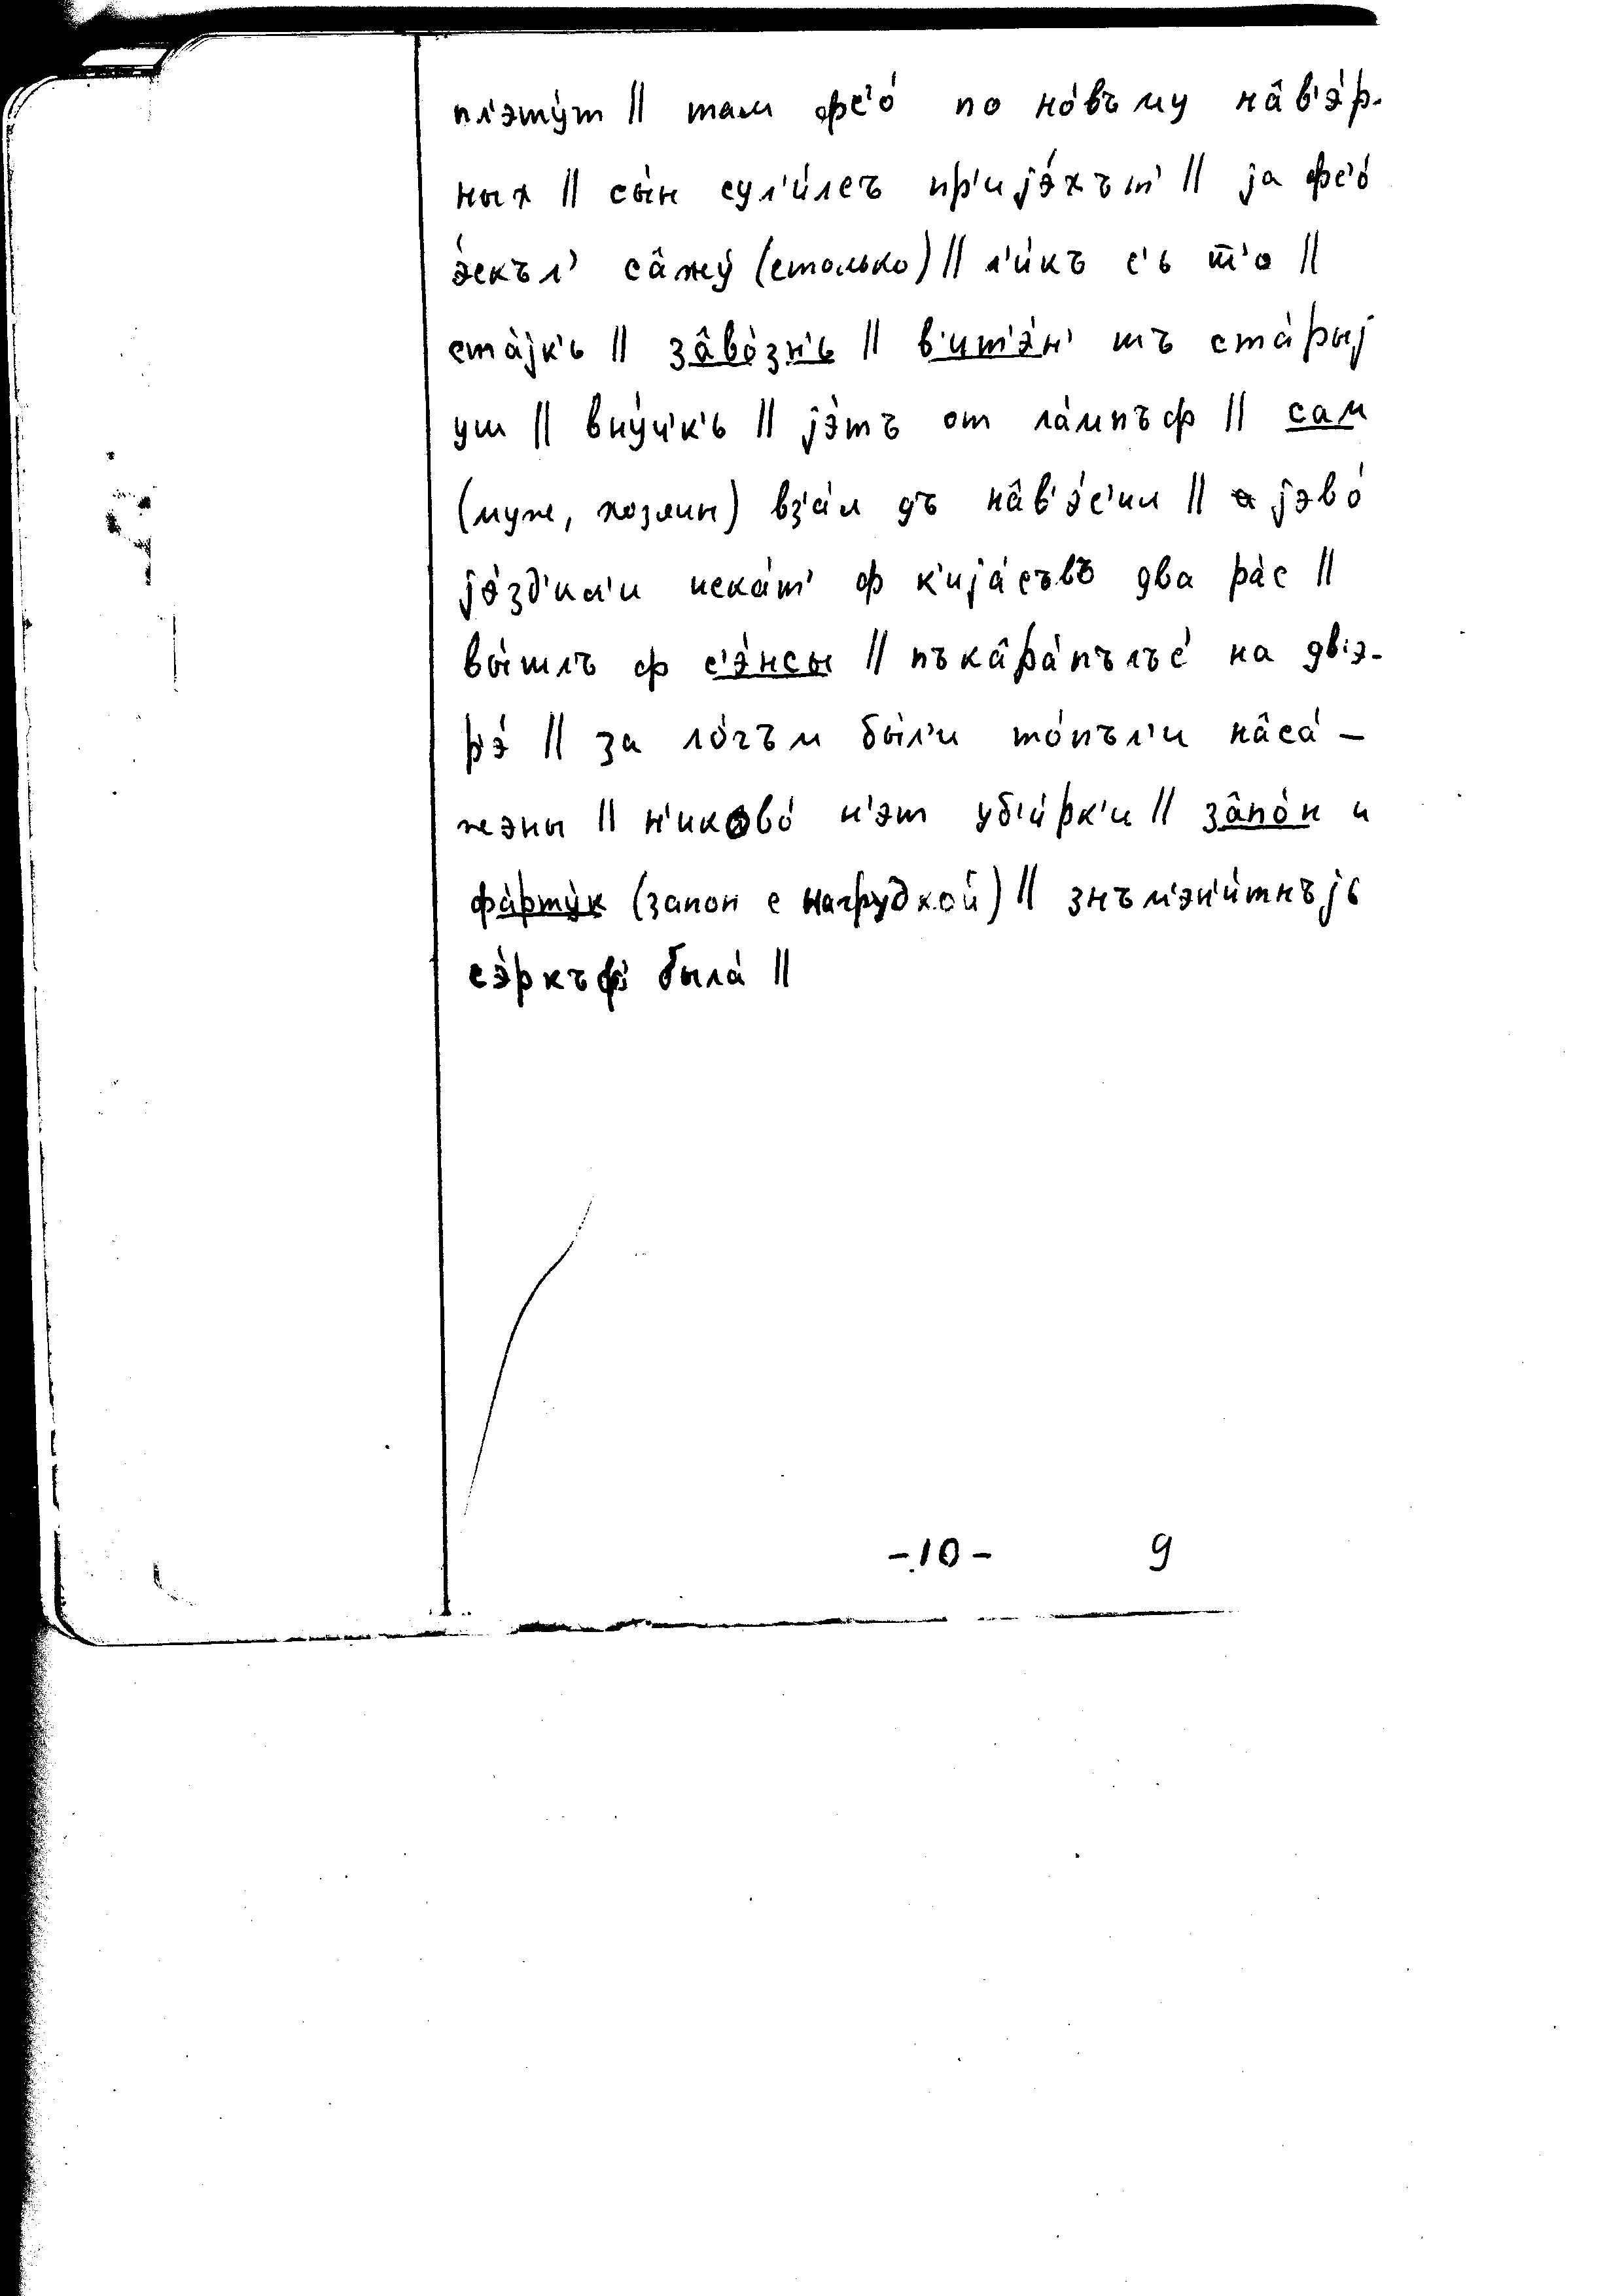 пл'эту́т || там фс'о́ по но́въму на̂в'э́р-
ных || сы́н сул'и́лсъ пр'ијэ́хът' || ја фс'о́
э́скъл' са̂жу́ (столько) || л'и́къ с'ь т̅'о ||
ста́јк'ь || за̂во́зн'ь || в'ит'э́н' шъ ста́рыј
уш || вну́ч'к'ь || јэ́тъ от ла́мпъф || сам
(муж, хозяин) вз'а́л дъ на̂в'э́с'ил || јэво́
јэ́зд'ил'и иска́т' ф к'ија́съвъ два ра́с ||
вы́шлъ ф с'э́нсы || пъка̂ра́пълъс' на дв'э-
р'э́ || за ло́гъм бы́л'и то́пъл'и на̂са́-
жэны || н'иково́ н'эт уб'и́рк'и || за̂по́н и
фа́рту́к (запон с нагрудкой) || знъм'эн'и́тнъјь
сэ́ркъф' была́ ||
-10- 9